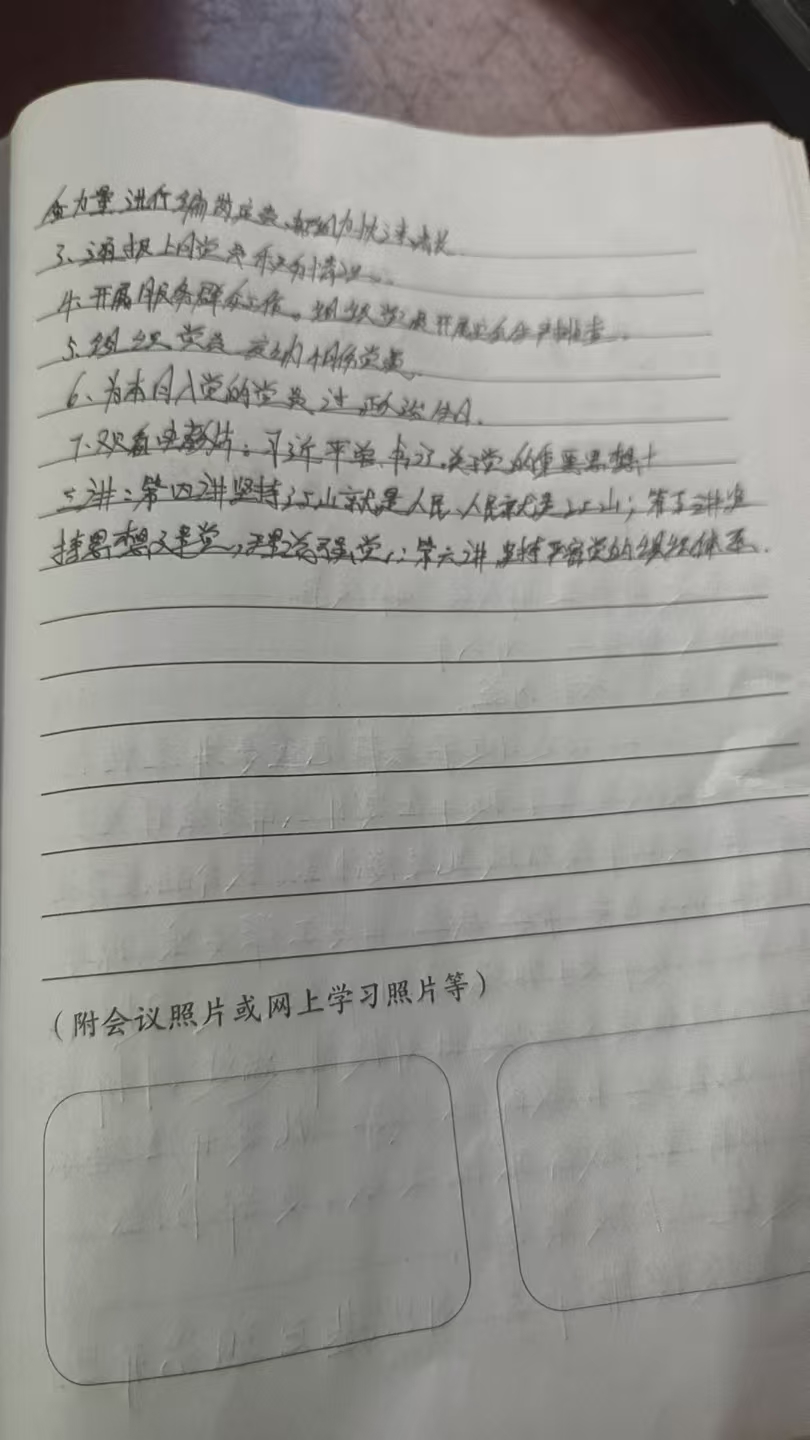 力量进行编
3、通报上月党员积分情况。
4、开展服务群众工作。组织党员开展安全生产排查。
5、组织党员 交纳相依党费。
6、为本月入党的党员过政治生日。
7、观看电教片：习近平总书记关于党的重要思想十
三讲：第四讲坚持江山就是人民、人民就是江山；第五讲坚
持思想建党，理论强党；第六讲 坚持严密党的组织体系.
（附会议照片或网上学习照片等）